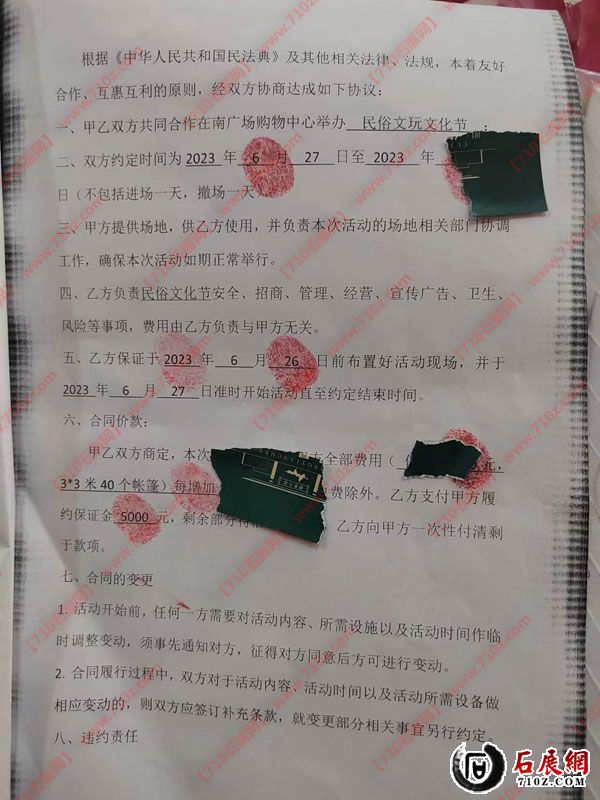 根据《中华人民共和国民法典》及其他相关法律、法规，本着友好
合作、互惠互利的原则，经双方协商达成如下协议：
一、甲乙双方共同合作在南广场购物中心举办 民俗文玩文化节 ；
二、双方约定时间为 2023 年 6 月 27 日至 2023 年
日(不包括进场一天，撤场一天)
三、甲方提供场地，供乙方使用，并负责本次活动的场地相关部门协调
工作，确保本次活动如期正常举行。
四、乙方负责民俗文化节安全、招商、管理、经营、宣传广告、卫生、
风险等事项，费用由乙方负责与甲方无关。
五、乙方保证于 2023 年 6 月 26 日前布置好活动现场，并于
2023 年 6 月 27 日准时开始活动直至约定结束时间。
六、合同价款：
甲乙双方商定，本次 方全部费用（ 元，
3*3 米 40 个帐篷）每增加 费除外。乙方支付甲方履
约保证金 5000 元，剩余部分待 乙方向甲方一次性付清剩
于款项。
七、合同的变更
1. 活动开始前，任何一方需要对活动内容、所需设施以及活动时间作临
时调整变动，须事先通知对方，征得对方同意后方可进行变动。
2. 合同履行过程中，双方对于活动内容、活动时间以及活动所需设备做
相应变动的，则双方应签订补充条款，就变更部分相关事宜另行约定。
八、违约责任
石展網
710Z.COM
【710石展网】www.710z.com